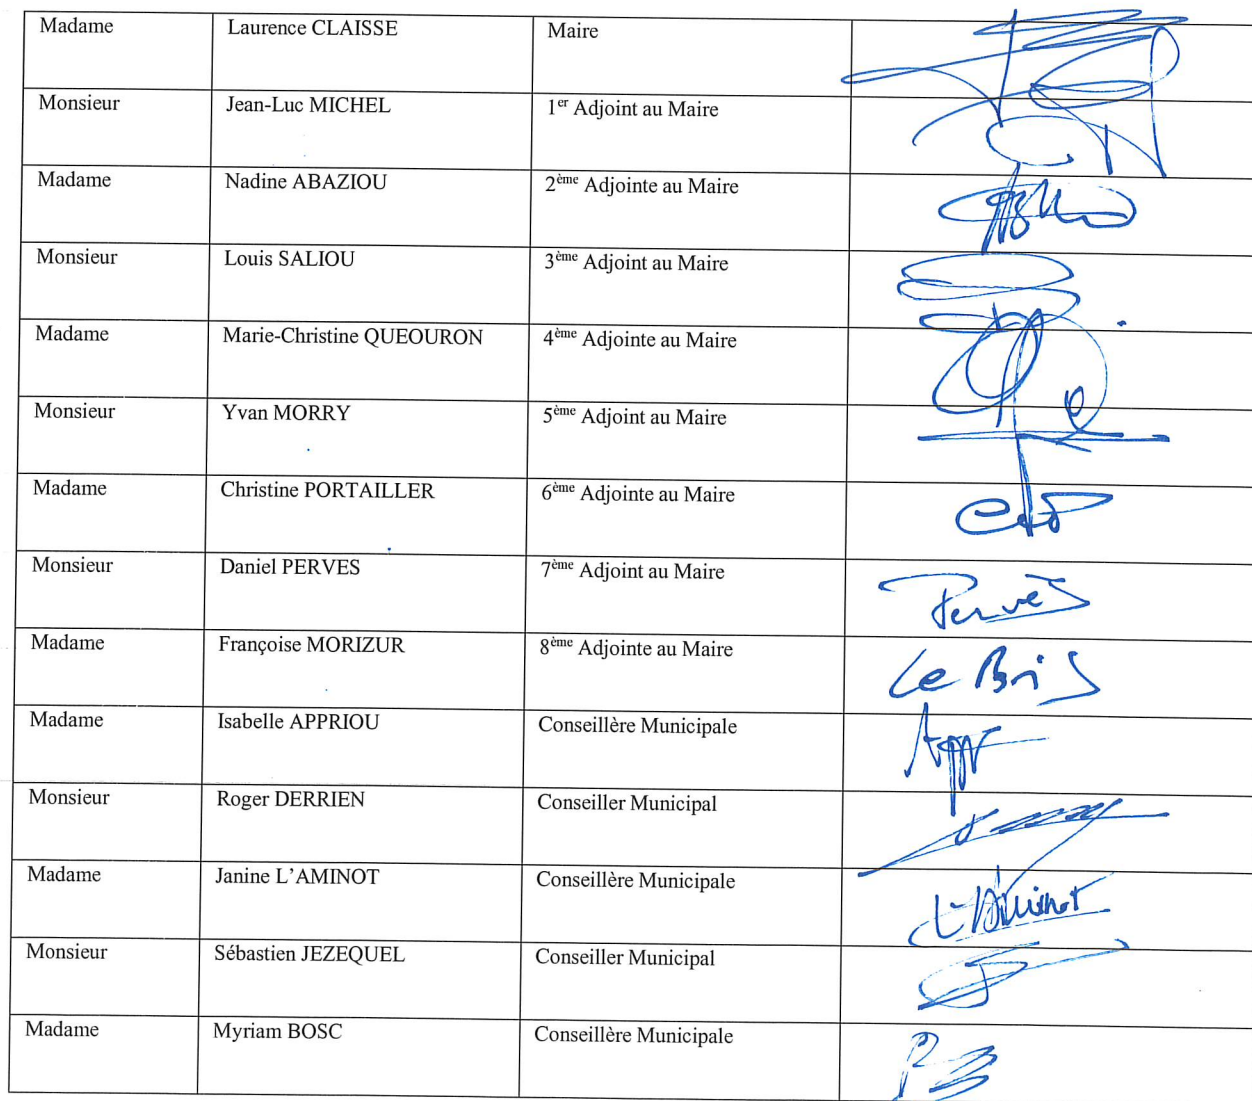 Madame Laurence CLAISSE Maire
Monsieur Jean-Luc MICHEL 1er Adjoint au Maire
Madame Nadine ABAZIOU 2ème Adjointe au Maire
Monsieur Louis SALIOU 3ème Adjoint au Maire
Madame Marie-Christine QUEOURON 4ème Adjointe au Maire
Monsieur Yvan MORRY 5ème Adjoint au Maire
Madame Christine PORTAILLER 6ème Adjointe au Maire
Monsieur Daniel PERVES 7ème Adjoint au Maire Pervès
Madame Françoise MORIZUR 8ème Adjointe au Maire Le Bris
Madame Isabelle APPRIOU Conseillère Municipale
Monsieur Roger DERRIEN Conseiller Municipal
Madame Janine L'AMINOT Conseillère Municipale L'Aminot
Monsieur Sébastien JEZEQUEL Conseiller Municipal
Madame Myriam BOSC Conseillère Municipale